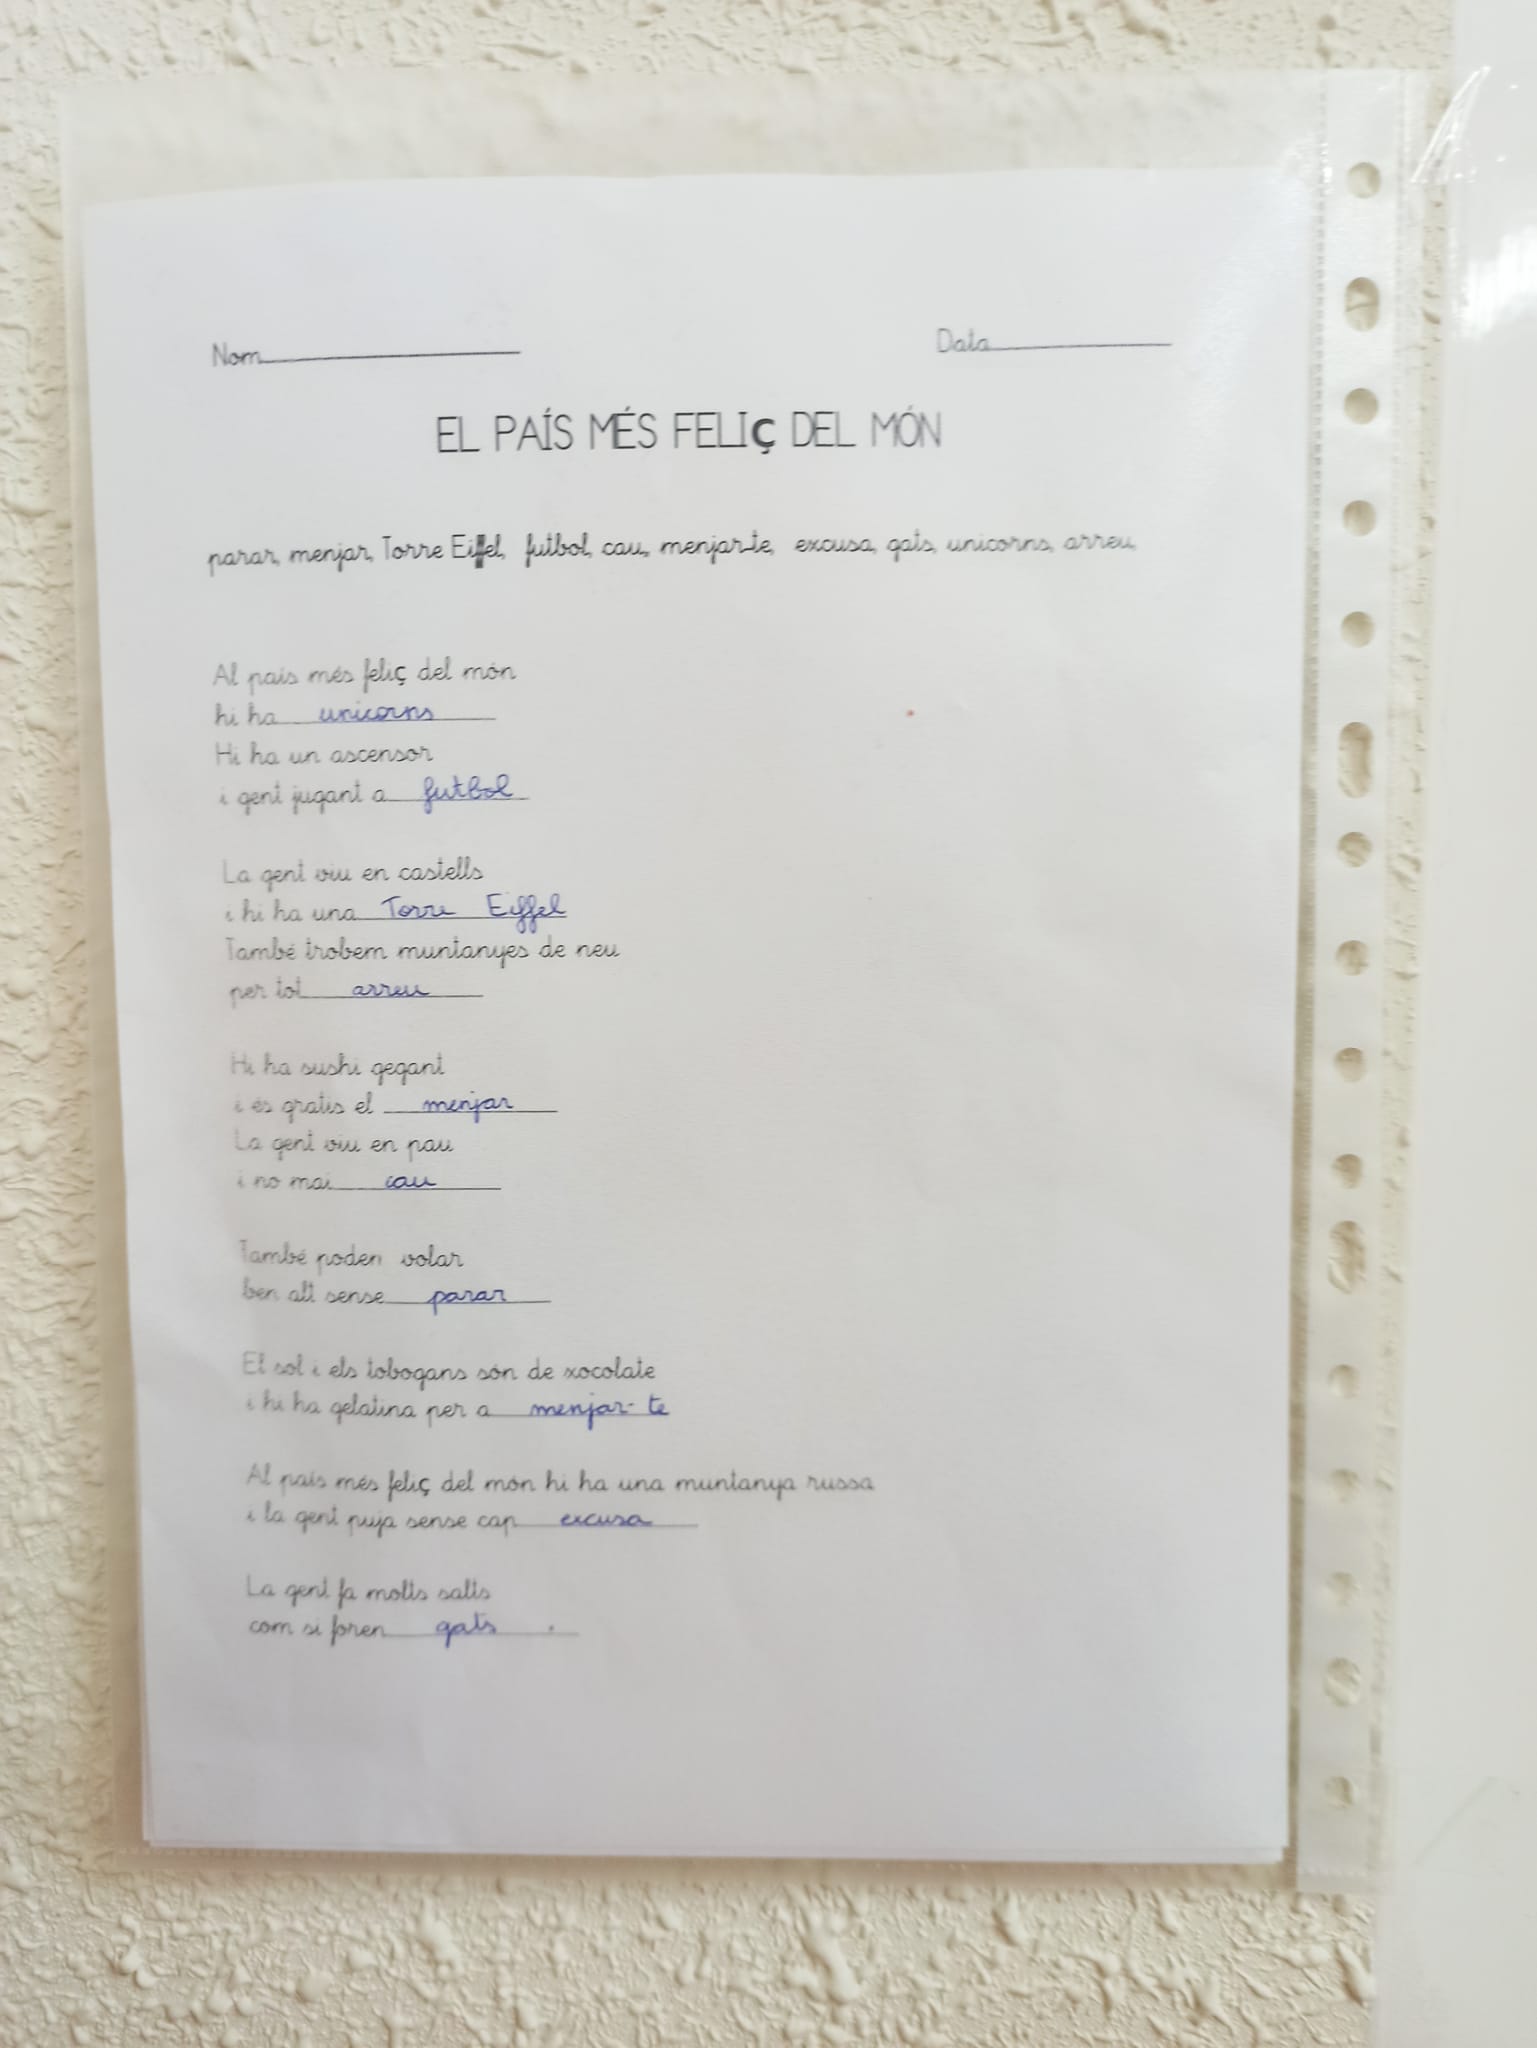 Nom__________ Data__________
EL PAÍS MÉS FELIÇ DEL MÓN
parar, menjar, Torre Eiffel, futbol, cau, menjar-te, excusa, gats, unicorns, arreu,
Al país més feliç del món
hi ha unicorns
Hi ha un ascensor
i gent jugant a futbol
La gent viu en castells
i hi ha una Torre Eiffel
També trobem muntanyes de neu
per tot arreu
Hi ha sushi gegant
i és gratis el menjar
La gent viu en pau
i no mai cau
També poden volar
ben alt sense parar
El sol i els tobogans són de xocolate
i hi ha gelatina per a menjar-te
Al país més feliç del món hi ha una muntanya russa
i la gent puja sense cap excusa
La gent fa molts salts
com si foren gats.